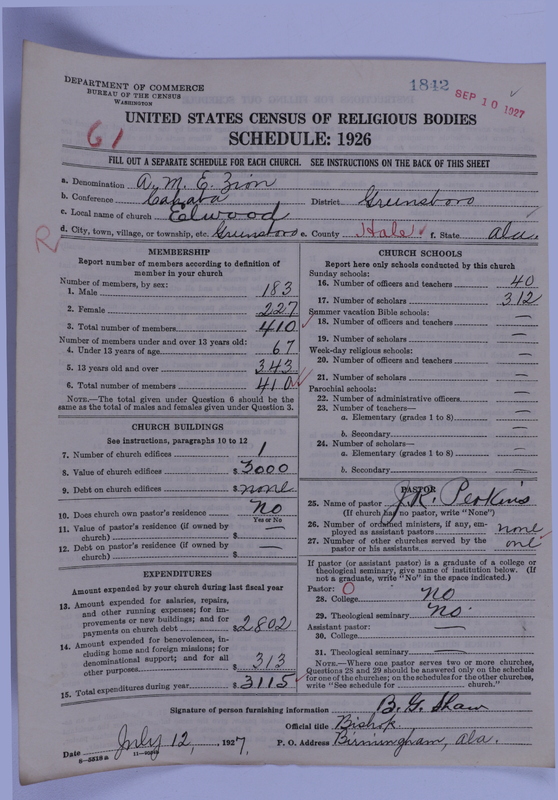 DEPARTMENT OF COMMERCE
BUREAU OF THE CENSUS
WASHINGTON
1842
SEP 10 1927
61
UNITED STATES CENSUS OF RELIGIOUS BODIES
SCHEDULE: 1926
FILL OUT A SEPARATE SCHEDULE FOR EACH CHURCH. SEE INSTRUCTIONS ON THE BACK OF THIS SHEET
a. Denomination A. M. E. Zion
b. Conference Cahaba District Greensboro
c. Local name of church Elwood
d. City, town, village, or township, etc. Greensboro e. County Hale f. State Ala.
R
MEMBERSHIP
Report number of members according to definition of
member in your church
Number of members, by sex:
1. Male 183
2. Female 227
3. Total number of members 410
Number of members under and over 13 years old:
4. Under 13 years of age 67
5. 13 years old and over 343
6. Total number of members 410
NOTE.—The total given under Question 6 should be
same as the total of males and females given under Question 3.
CHURCH BUILDINGS
See instructions, paragraphs 10 to 12
7. Number of church edifices 1
8. Value of church edifices $3000
9. Debt on church edifices $none
10. Does church own pastor's residence? No
Yes or No
11. Value of pastor's residence (if owned by
church) $—
12. Debt on pastor's residence (if owned by
church) $—
EXPENDITURES
Amount expended by your church during last fiscal year
13. Amount expended for salaries, repairs,
and other running expenses; for im-
provements or new buildings; and for
payments on church debt $2802
14. Amount expended for benevolences, in-
cluding home and foreign missions; for
denominational support; and for all
other purposes $313
15. Total expenditures during year $3115
CHURCH SCHOOLS
Report here only schools conducted by this church
Sunday schools:
16. Number of officers and teachers 40
17. Number of scholars 312
Summer vacation Bible schools:
18. Number of officers and teachers —
19. Number of scholars —
Week-day religious schools:
20. Number of officers and teachers —
21. Number of scholars —
Parochial schools:
22. Number of administrative officers —
23. Number of teachers—
a. Elementary (grades 1 to 8) —
b. Secondary —
24. Number of scholars—
a. Elementary (grades 1 to 8) —
b. Secondary —
PASTOR
25. Name of pastor J.R. Perkins
(If church has no pastor, write "None")
26. Number of ordained ministers, if any, em-
ployed as assistant pastors none
27. Number of other churches served by the
pastor or his assistants one
If pastor (or assistant pastor) is a graduate of a college or
theological seminary, give name of institution below. (If
not a graduate, write "No" in the space indicated.)
Pastor:
28. College no
29. Theological seminary no
Assistant pastor:
30. College —
31. Theological seminary —
NOTE.—Where one pastor serves two or more churches,
Questions 28 and 29 should be answered only on the schedule
for one of the churches; on the schedules for the other churches,
write "See schedule for church."
Signature of person furnishing information B. G. Shaw
Official title Bishop.
Date July 12, 1927. P. O. Address Birmingham, Ala.
8-3318a